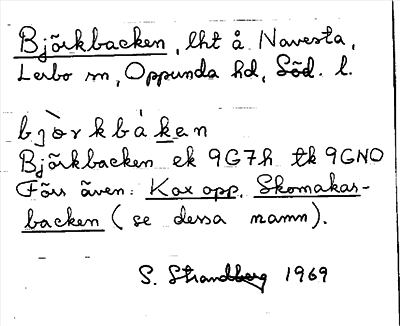 Björkbacken, lht å Navesta,
Lerbo sn, Oppunda hd, Söd. l.
bjò̀rkbákan
Björkbacken ek 9G7h tk 9GNO
Förr även: Kaxopp. Skomakar-
backen (se dessa namn).
S. Strandberg 1969